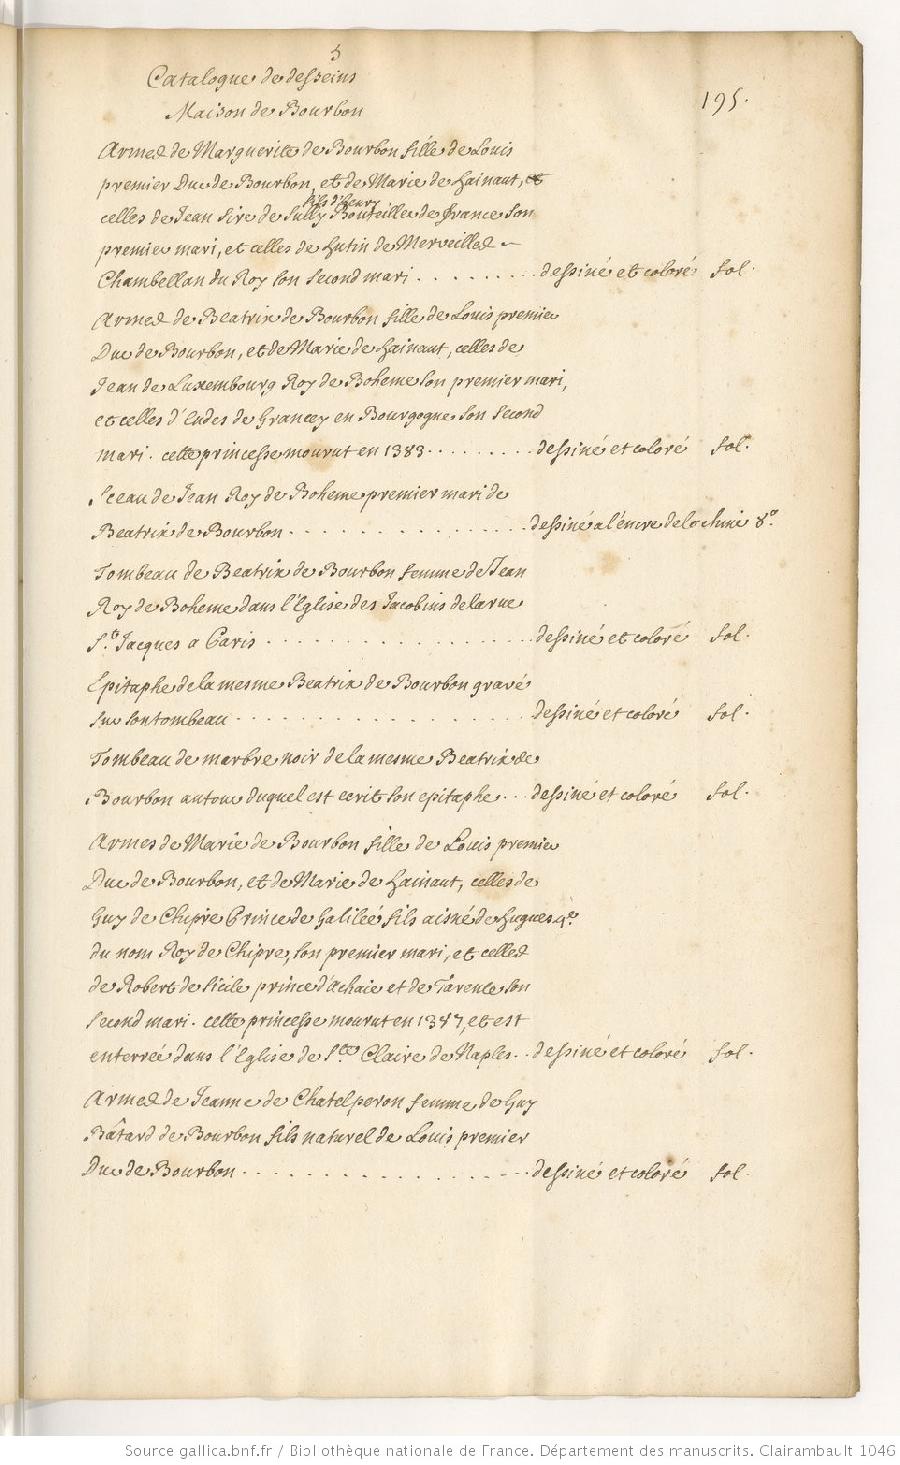 5
Catalogue de desseins
Maison de Bourbon
195.
Armes de Marguerite de Bourbon fille de Louis
premier Duc de Bourbon, et de Marie de hainaut, et
fils d'henry
celles de Jean sire de Sully Bouteiller de france son
premier mari, et celles de hutin de Merveilles
Chambellan du Roy son second mari . . . . . . . . dessiné et coloré fol.
Armes de Beatrix de Bourbon fille de Louis premier
Duc de Bourbon, et de Marie de hainaut, celles de
Jean de Luxembourg Roy de Boheme son premier mari,
et celles d'Eudes de Grancey en Bourgogne son second
mari. cette princesse mourut en 1383 . . . . . . . . dessiné et coloré fol.
Sceau de Jean Roy de Boheme premier mari de
Beatrix de Bourbon . . . . . . . . . . . . . . dessiné a l'encre de la chine 8°.
Tombeau de Beatrix de Bourbon femme de Jean
Roy de Boheme dans l'Eglise des Jacobins de la rue
St. Jacques a Paris . . . . . . . . . . . . . . dessiné et coloré fol.
Epitaphe de la mesme Beatrix de Bourbon gravé
sur son tombeau . . . . . . . . . . . . . . . . dessiné et coloré fol.
Tombeau de marbre noir de la mesme Beatrix de
Bourbon autour duquel est ecrit son epitaphe . . . dessiné et coloré fol.
Armes de Marie de Bourbon fille de Louis premier
Duc de Bourbon, et de Marie de hainaut, celles de
Guy de Chipre Prince de Galileé fils aisné de hugues 4e.
du nom Roy de Chipre, son premier mari, et celles
de Robert de Sicile prince d'Achaie et de Tarente son
second mari. cette princesse mourut en 1387, et est
enterrée dans l'Eglise de Ste Claire de Naples . . dessiné et coloré fol.
Armes de Jeanne de Chatelperon femme de Guy
Bâtard de Bourbon fils naturel de Louis premier
Duc de Bourbon . . . . . . . . . . . . . . . . dessiné et coloré fol.
Source gallica.bnf.fr / Bibliothèque nationale de France. Département des manuscrits. Clairambault 1046